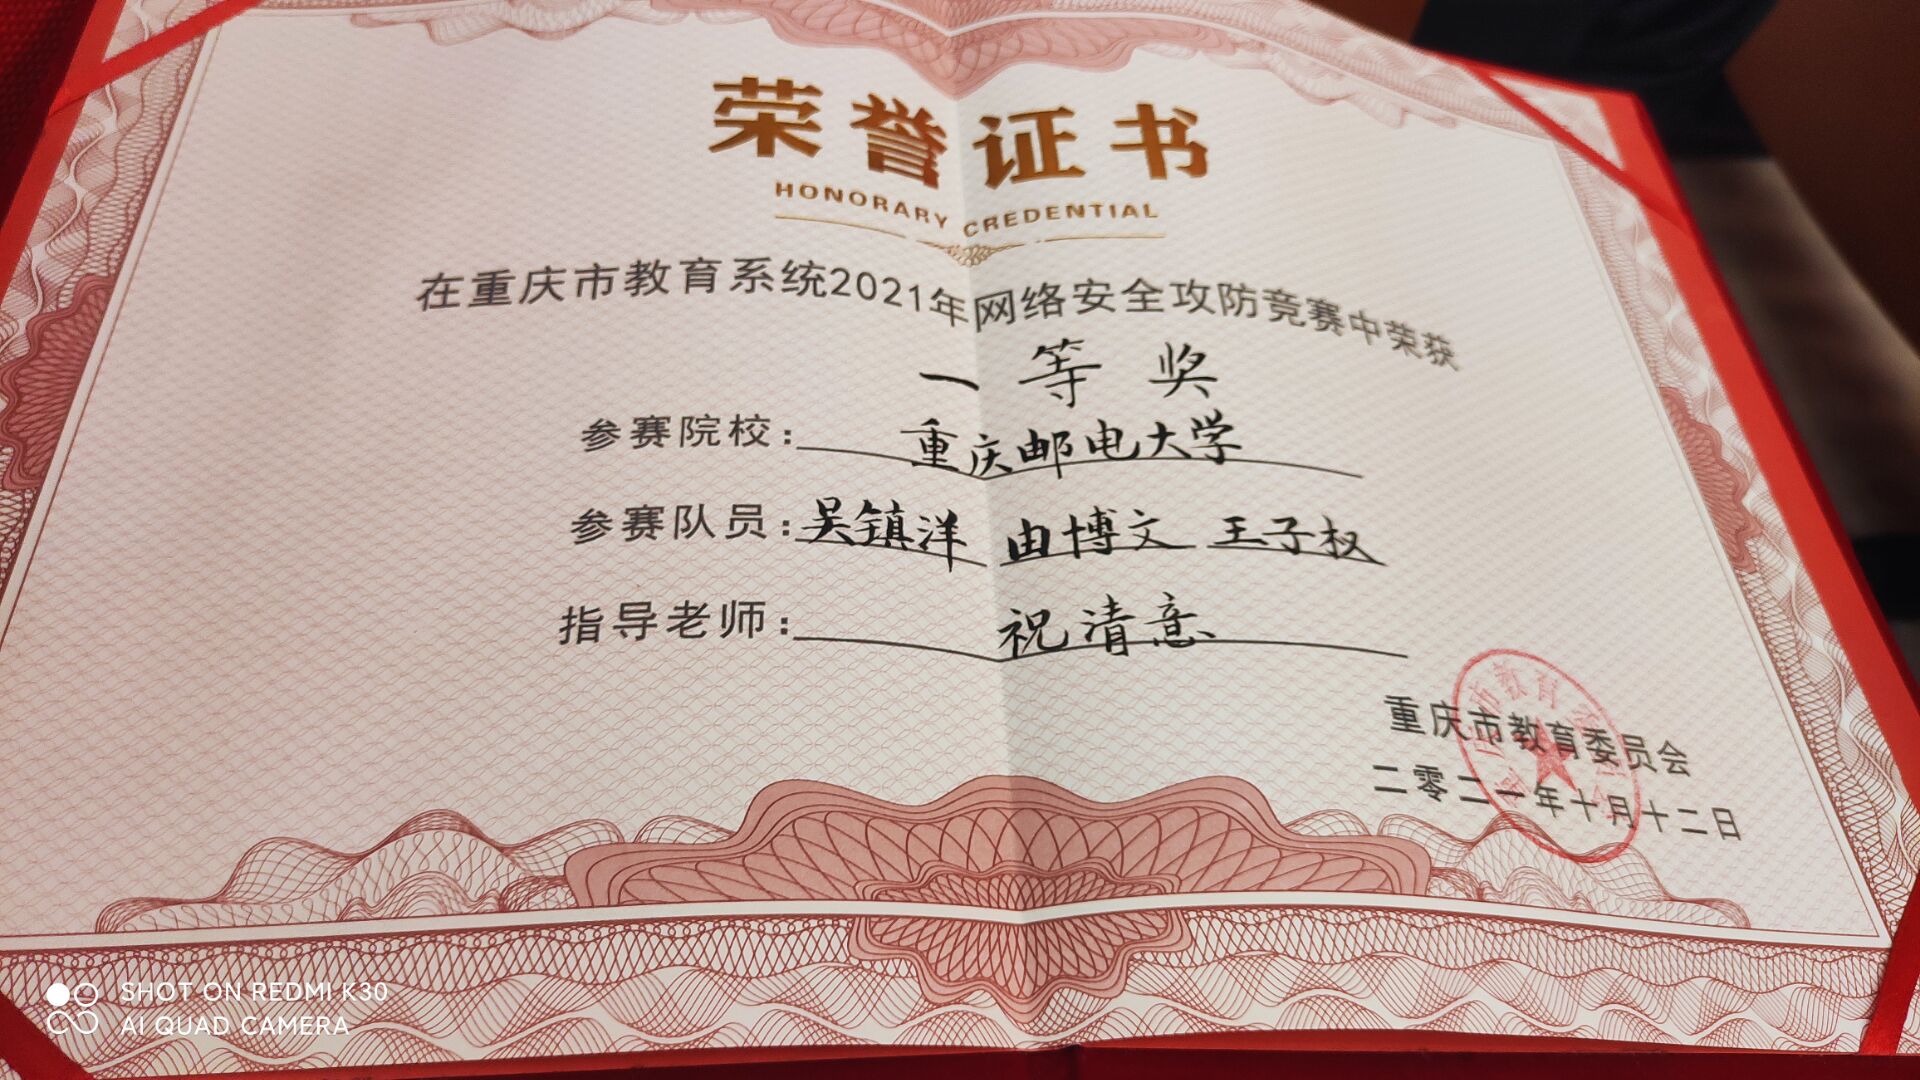 荣誉证书
HONORARY CREDENTIAL
在重庆市教育系统2021年网络安全攻防竞赛中荣获
一等奖
参赛院校：重庆邮电大学
参赛队员：吴镇洋 由博文 王子权
指导老师：祝清意
重庆市教育委员会
二零二一年十月十二日
SHOT ON REDMI K30
AI QUAD CAMERA